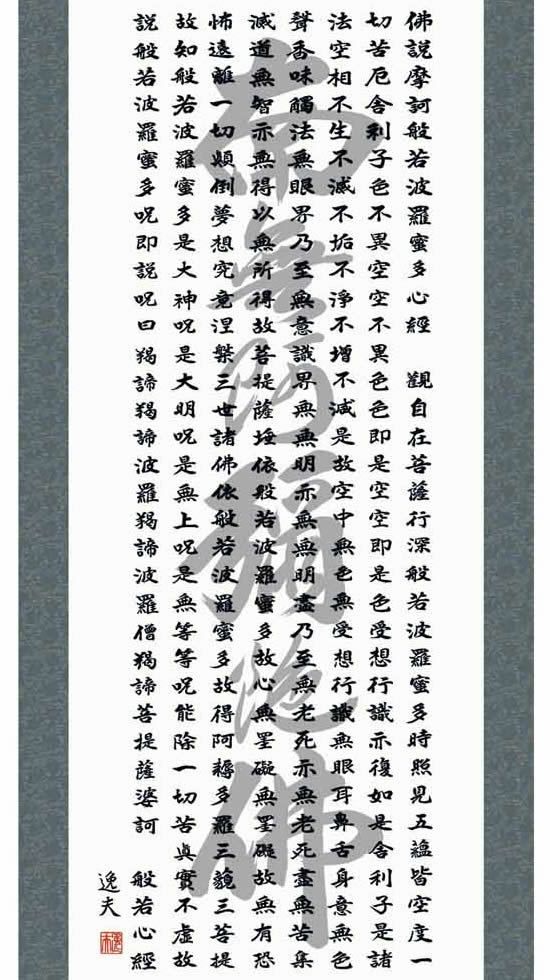 佛說摩訶般若波羅蜜多心經 觀自在菩薩行深般若波羅蜜多時照見五蘊皆空度一
切苦厄舍利子色不異空空不異色色即是空空即是色受想行識亦復如是舍利子是諸
法空相不生不滅不垢不淨不增不減是故空中無色無受想行識無眼耳鼻舌身意無色
聲香味觸法無眼界乃至無意識界無無明亦無無明盡乃至無老死亦無老死盡無苦集
滅道無智亦無得以無所得故菩提薩埵依般若波羅蜜多故心無罣礙無罣礙故無有恐
怖遠離一切顛倒夢想究竟涅槃三世諸佛依般若波羅蜜多故得阿耨多羅三藐三菩提
故知般若波羅蜜多是大神咒是大明咒是無上咒是無等等咒能除一切苦真實不虛故
說般若波羅蜜多咒即說咒曰羯諦羯諦波羅羯諦波羅僧羯諦菩提薩婆訶 般若心經
逸夫
南無阿彌陀佛